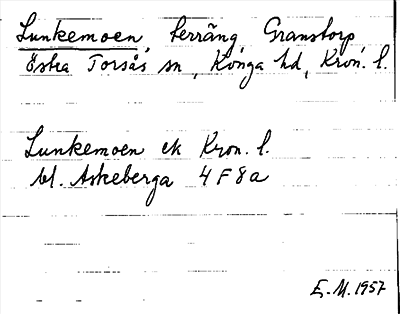 Lunkemoen, terräng Granstorp
Östra Torsås sn, Konga hd, Kron. l.
Lunkemoen ek Kron. l.
bl. Askeberga 4F8a
E.M. 1957